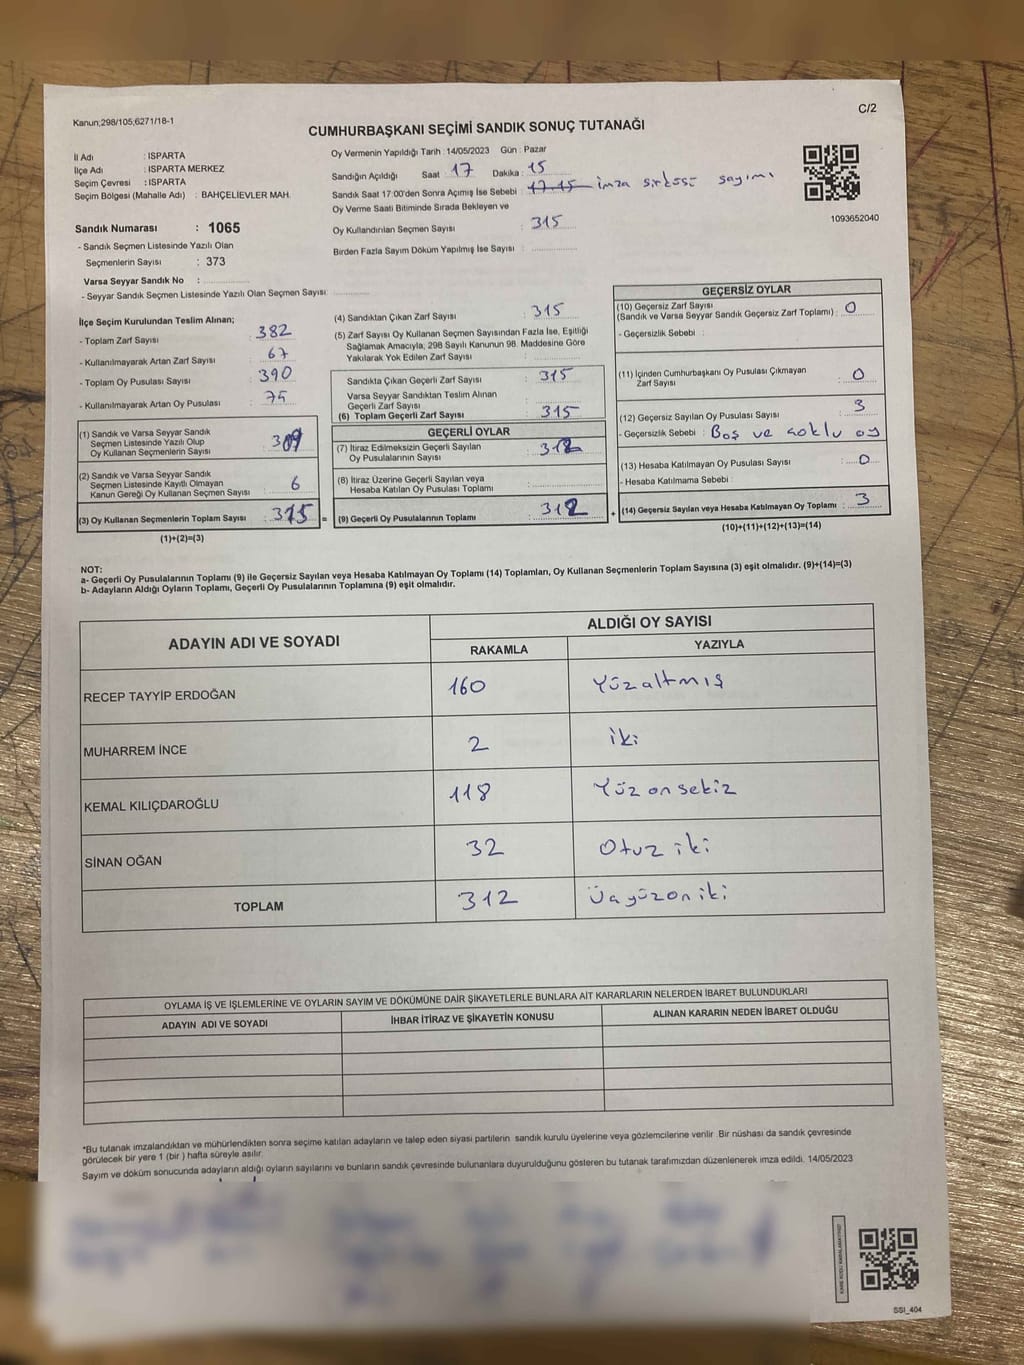 Kanun;298/105,6271/18-1
C/2
CUMHURBAŞKANI SEÇİMİ SANDIK SONUÇ TUTANAĞI
İl Adı : ISPARTA
İlçe Adı : ISPARTA MERKEZ
Seçim Çevresi : ISPARTA
Seçim Bölgesi (Mahalle Adı) : BAHÇELİEVLER MAH.
Sandık Numarası : 1065
- Sandık Seçmen Listesinde Yazılı Olan
Seçmenlerin Sayısı : 373
Varsa Seyyar Sandık No :
- Seyyar Sandık Seçmen Listesinde Yazılı Olan Seçmen Sayısı:
Oy Vermenin Yapıldığı Tarih : 14/05/2023 Gün : Pazar
Sandığın Açıldığı Saat : 17 Dakika : 15
Sandık Saat 17:00'den Sonra Açımış İse Sebebi : 17.15 imza sirküsü sayımı
Oy Verme Saati Bitiminde Sırada Bekleyen ve
Oy Kullandırılan Seçmen Sayısı : 315
Birden Fazla Sayım Döküm Yapılmış İse Sayısı :
1093652040
İlçe Seçim Kurulundan Teslim Alınan;
- Toplam Zarf Sayısı : 382
- Kullanılmayarak Artan Zarf Sayısı : 67
- Toplam Oy Pusulası Sayısı : 390
- Kullanılmayarak Artan Oy Pusulası : 75
(1) Sandık ve Varsa Seyyar Sandık
Seçmen Listesinde Yazılı Olup
Oy Kullanan Seçmenlerin Sayısı : 309
(2) Sandık ve Varsa Seyyar Sandık
Seçmen Listesinde Kayıtlı Olmayan
Kanun Gereği Oy Kullanan Seçmen Sayısı : 6
(3) Oy Kullanan Seçmenlerin Toplam Sayısı : 315 =
(1)+(2)=(3)
(4) Sandıktan Çıkan Zarf Sayısı : 315
(5) Zarf Sayısı Oy Kullanan Seçmen Sayısından Fazla İse, Eşitliği
Sağlamak Amacıyla, 298 Sayılı Kanunun 98. Maddesine Göre
Yakılarak Yok Edilen Zarf Sayısı :
Sandıkta Çıkan Geçerli Zarf Sayısı : 315
Varsa Seyyar Sandıktan Teslim Alınan
Geçerli Zarf Sayısı :
(6) Toplam Geçerli Zarf Sayısı : 315
GEÇERLİ OYLAR
(7) İtiraz Edilmeksizin Geçerli Sayılan
Oy Pusulalarının Sayısı : 312
(8) İtiraz Üzerine Geçerli Sayılan veya
Hesaba Katılan Oy Pusulası Toplamı :
(9) Geçerli Oy Pusulalarının Toplamı : 312 +
GEÇERSİZ OYLAR
(10) Geçersiz Zarf Sayısı
(Sandık ve Varsa Seyyar Sandık Geçersiz Zarf Toplamı) : 0
- Geçersizlik Sebebi :
(11) İçinden Cumhurbaşkanı Oy Pusulası Çıkmayan
Zarf Sayısı : 0
(12) Geçersiz Sayılan Oy Pusulası Sayısı : 3
- Geçersizlik Sebebi : Boş ve çoklu oy
(13) Hesaba Katılmayan Oy Pusulası Sayısı : 0
- Hesaba Katılmama Sebebi :
(14) Geçersiz Sayılan veya Hesaba Katılmayan Oy Toplamı : 3
(10)+(11)+(12)+(13)=(14)
NOT:
a- Geçerli Oy Pusulalarının Toplamı (9) ile Geçersiz Sayılan veya Hesaba Katılmayan Oy Toplamı (14) Toplamları, Oy Kullanan Seçmenlerin Toplam Sayısına (3) eşit olmalıdır. (9)+(14)=(3)
b- Adayların Aldığı Oyların Toplamı, Geçerli Oy Pusulalarının Toplamına (9) eşit olmalıdır.
ADAYIN ADI VE SOYADI
ALDIĞI OY SAYISI
RAKAMLA
YAZIYLA
RECEP TAYYİP ERDOĞAN 160 Yüzaltmış
MUHARREM İNCE 2 iki
KEMAL KILIÇDAROĞLU 118 Yüzonsekiz
SİNAN OĞAN 32 Otuziki
TOPLAM 312 Üçyüzoniki
OYLAMA İŞ VE İŞLEMLERİNE VE OYLARIN SAYIM VE DÖKÜMÜNE DAİR ŞİKAYETLERLE BUNLARA AİT KARARLARIN NELERDEN İBARET BULUNDUKLARI
ADAYIN ADI VE SOYADI
İHBAR İTİRAZ VE ŞİKAYETİN KONUSU
ALINAN KARARIN NEDEN İBARET OLDUĞU
*Bu tutanak imzalandıktan ve mühürlendikten sonra seçime katılan adayların ve talep eden siyasi partilerin sandık kurulu üyelerine veya gözlemcilerine verilir. Bir nüshası da sandık çevresinde
görülecek bir yere 1 (bir ) hafta süreyle asılır.
Sayım ve döküm sonucunda adayların aldığı oyların sayılarını ve bunların sandık çevresinde bulunanlara duyurulduğunu gösteren bu tutanak tarafımızdan düzenlenerek imza edildi. 14/05/2023
SSI_404